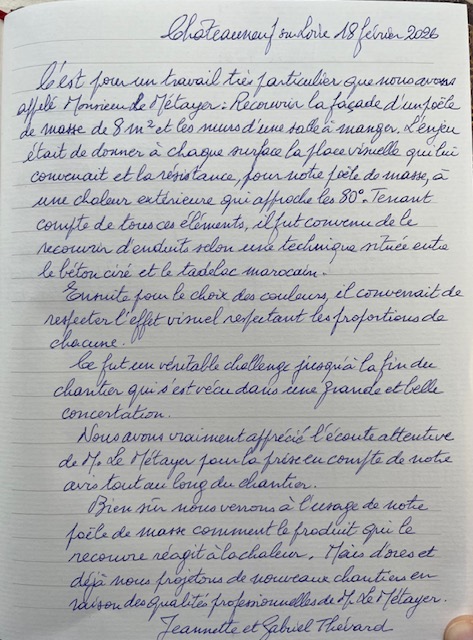 Châteauneuf sur Loire 18 février 2026
C'est pour un travail très particulier que nous avons
appelé Monsieur Le Métayer : Recouvrir la façade d'un poêle
de masse de 8 m² et les murs d'une salle à manger. L'enjeu
était de donner à chaque surface la place visuelle qui lui
convenait et la résistance, pour notre poêle de masse, à
une chaleur extérieure qui approche les 80°. Tenant
compte de tous ces éléments, il fut convenu de le
recouvrir d'enduits selon une technique située entre
le béton ciré et le tadelac marocain.
Ensuite pour le choix des couleurs, il convenait de
respecter l'effet visuel respectant les proportions de
chacune.
Ce fut un véritable challenge jusqu'à la fin du
chantier qui s'est vécu dans une grande et belle
concertation.
Nous avons vraiment apprécié l'écoute attentive
de M. Le Métayer pour la prise en compte de notre
avis tout au long du chantier.
Bien sûr nous verrons à l'usage de notre
poêle de masse comment le produit qui le
recouvre réagit à la chaleur. Mais d'ores et
déjà nous projetons de nouveaux chantiers en
raison des qualités professionnelles de M. Le Métayer.
Jeannette et Gabriel Thévard